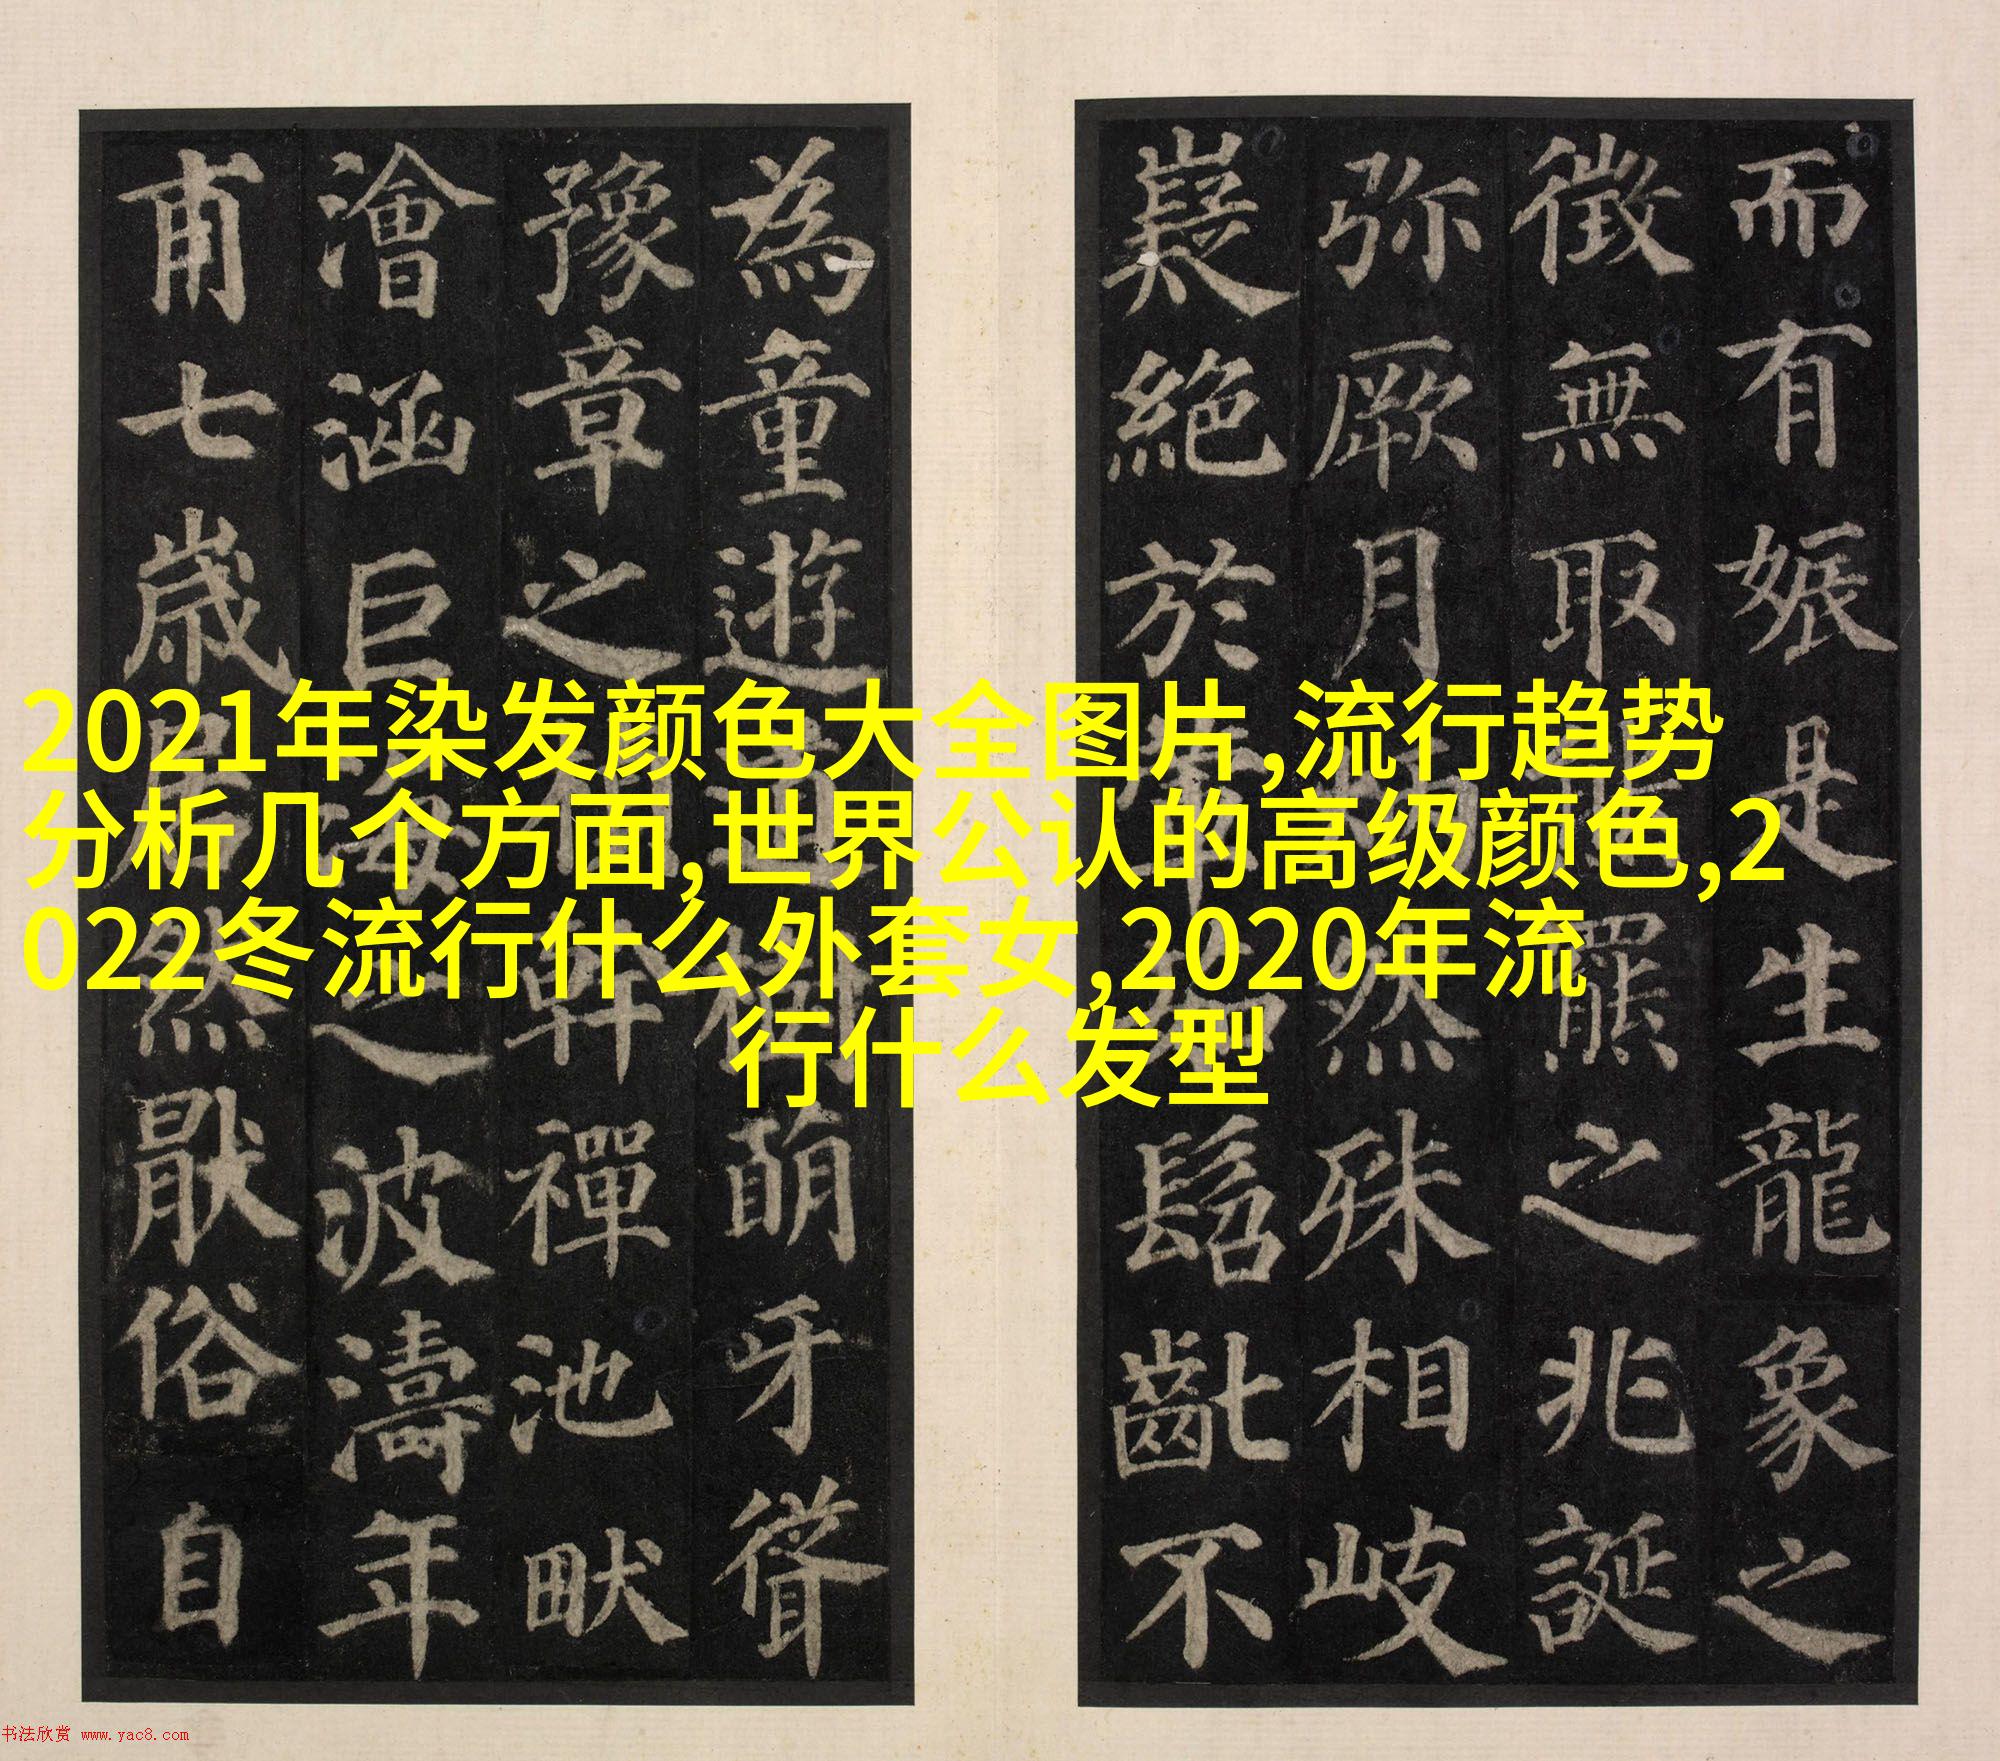 而有娠是生龍象之
徵無取羆之兆誕
弥厥月然殊相岐
嶷絕於髫齔不
為童遊道樹萌牙聳
豫章之幹禪池畎
澮涵巨海之波濤年
甫七歲居然猒俗自
2021年染发颜色大全图片,流行趋势
分析几个方面,世界公认的高级颜色,2
022冬流行什么外套女,2020年流
行什么发型
书法欣赏 www.yac8.com